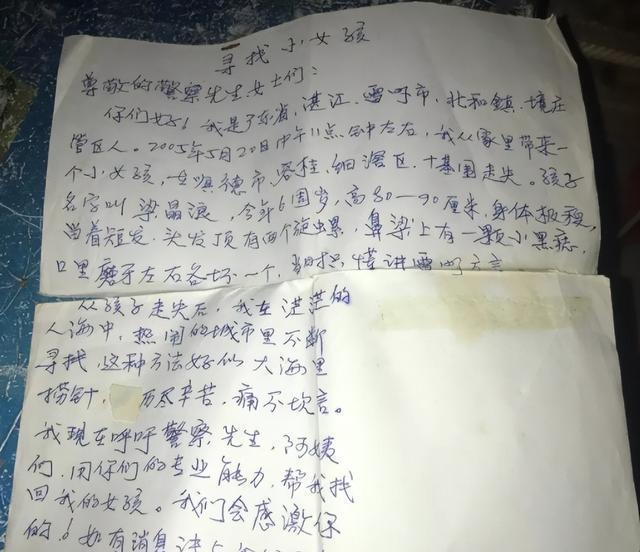 寻找小女孩
尊敬的警察先生女士们:
你们好!我是广东省,湛江,雷呼市,北和鎮,境庄
管区人。2005年5月20日中午11点分左右,我从家里带来一
个小女孩,在顺德市,容桂,细滘区,十基围走失。孩子
名字叫梁晶浪,今年6周岁,高80—90厘米,身体极瘦,
当着短发,头发顶有两个旋虫累,鼻梁上有一颗小黑痣,
口里磨牙左右各坏一个,当时只懂讲雷呼方言
从孩子走失后,我在湛湛的
人海中,热闹的城市里不断
寻找,这种方法好似大海里
捞针,万尽辛苦,痛不坎言。
我现在呼呼警察先生,阿姨
们,用你们的专业能力,帮我找
回我的女孩。我们会感激你
的!如有消息请与